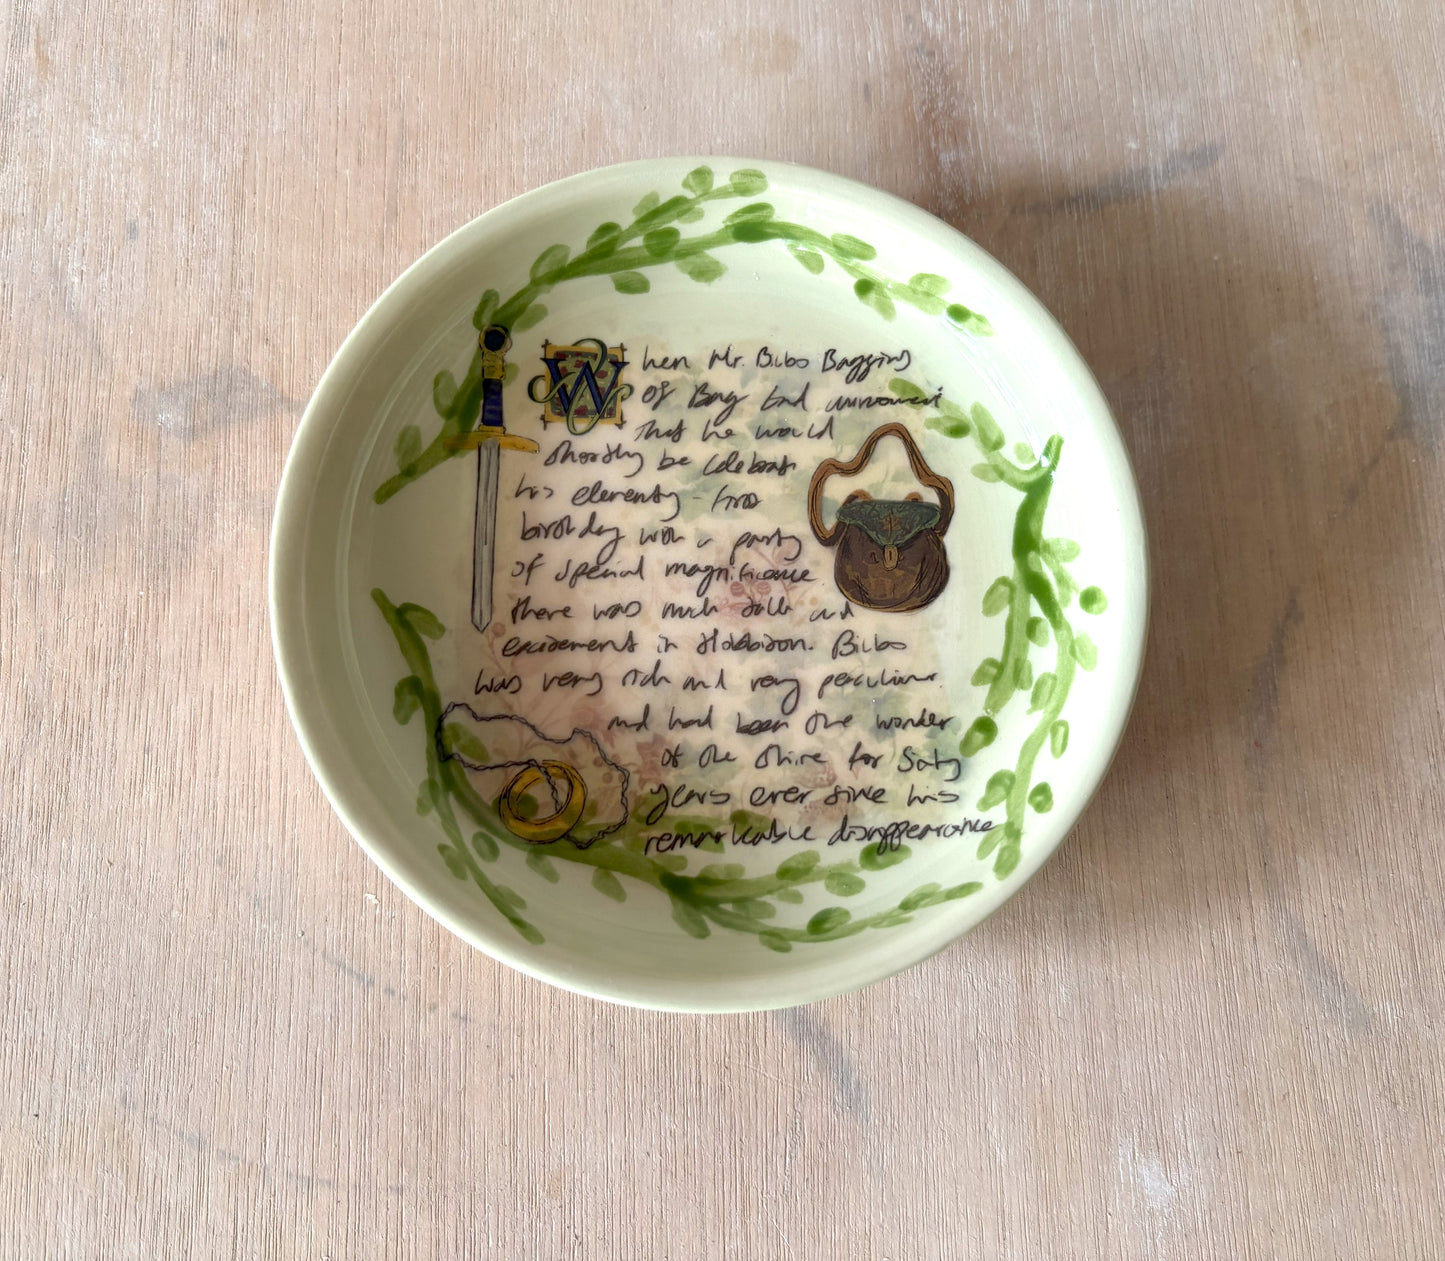 When Mr. Bilbo Baggins
of Bag End announced
that he would
shortly be celebrating
his eleventy-first
birthday with a party
of special magnificence
there was much talk and
excitement in Hobbiton. Bilbo
was very rich and very peculiar
and had been the wonder
of the Shire for Sixty
years ever since his
remarkable disappearance